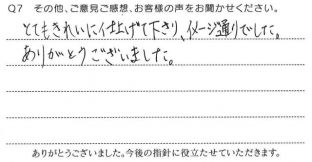 Q7 その他、ご意見ご感想、お客様の声をお聞かせください。
とてもきれいに仕上げて下さり、イメージ通りでした。
ありがとうございました。
ありがとうございました。今後の指針に役立たせていただきます。